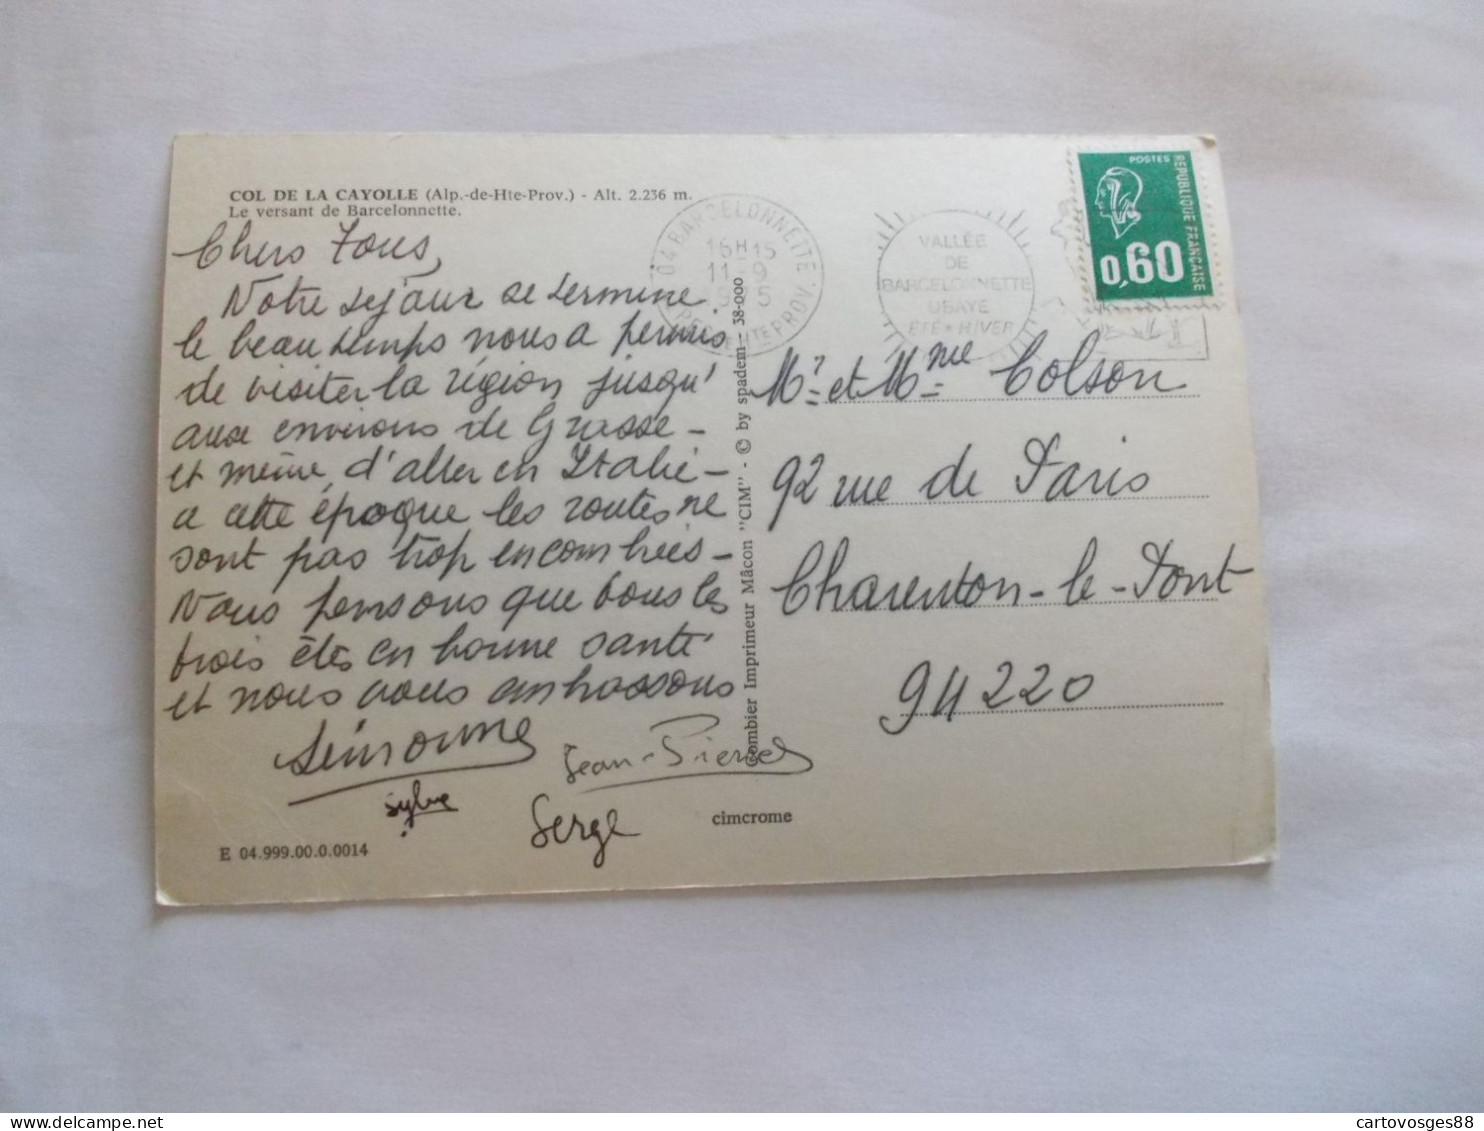 COL DE LA CAYOLLE (Alp.-de-Hte-Prov.) - Alt. 2.236 m.
Le versant de Barcelonnette.
Chers Tous,
Notre séjour se termine.
le beau temps nous a permis
de visiter la région jusqu'
aux environs de Grasse -
et même, d'aller en Italie -
a cette époque les routes ne
sont pas trop encombrées -
Nous pensons que tous les
trois êtes en bonne santé
et nous vous embrassons
Simonne
Jean-Pierre
Sylvie
Serge
E 04.999.00.0.0014
cimcrome
Combier Imprimeur Mâcon "CIM" - © by spadem - 38-000
04 BARCELONNETTE
16H15
11-9
PROV.
VALLÉE
DE
BARCELONNETTE
UBAYE
ÉTÉ * HIVER
POSTES
REPUBLIQUE FRANCAISE
0,60
Mr et Mme Colson
92 rue de Paris
Charenton-le-Pont
94220
cartovosges88